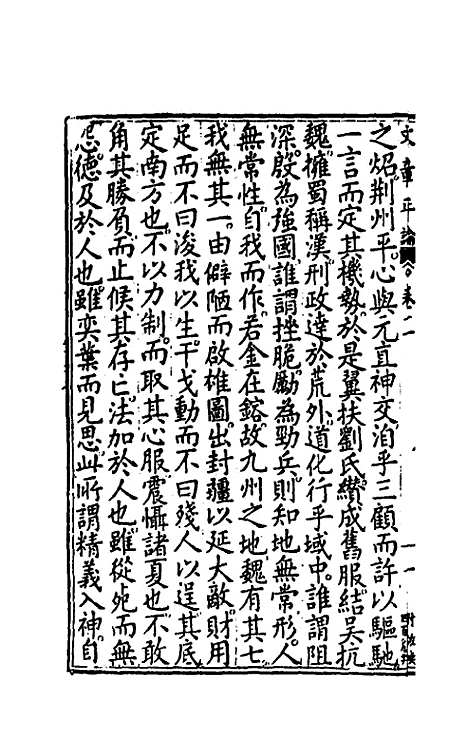 文章平論　卷二
之炤荆州平心與元直神交洎乎三顧而許以驅馳
一言而定其機勢於是翼扶劉氏纘成舊服結吴抗
魏擁蜀稱漢刑政達於荒外道化行乎域中誰謂阻
深殷為強國誰謂挫脆勵為勁兵則知地無常形人
無常性自我而作若金在鎔故九州之地魏有其七
我無其一由僻陋而啟雄圖出封疆以延大敵財用
足而不曰浚我以生干戈動而不曰殘人以逞其底
定南方也不以力制而取其心服震懾諸夏也不敢
角其勝負而止候其存亡法加於人也雖從死而無
怨德及於人也雖奕葉而見思此所謂精義入神自